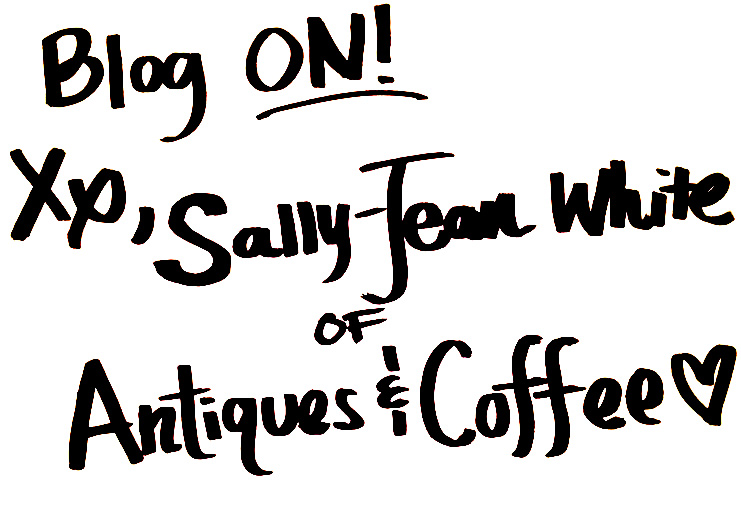 Blog ON!
Xo, Sally-Jean White
OF
Antiques & Coffee ♡